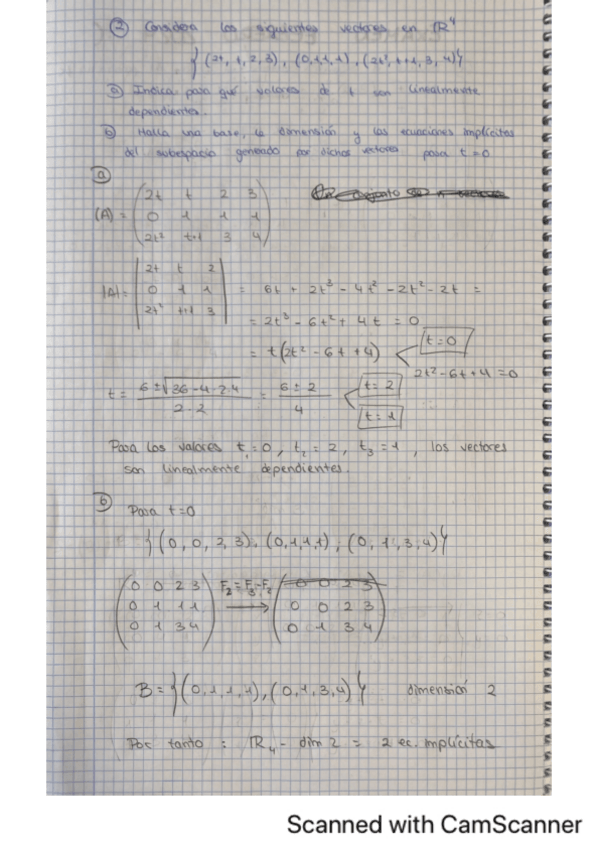 ② Considera los siguientes vectores en ℝ⁴
{(2t, t, 2, 3), (0,1,1,1), (2t², t+1, 3, 4)}
ⓐ Indica para qué valores de t son linealmente
dependientes.
ⓑ Halla una base, la dimensión y las ecuaciones implícitas
del subespacio generado por dichos vectores para t=0
ⓐ
(A) = ( 2t t 2 3
0 1 1 1
2t² t+1 3 4 )
|A| = | 2t t 2
0 1 1
2t² t+1 3 | = 6t + 2t³ - 4t² - 2t² - 2t =
= 2t³ - 6t² + 4t = 0
= t(2t² - 6t + 4) t=0
2t² - 6t + 4 = 0
t = (6 ± √(36 - 4·2·4)) / (2·2) = (6 ± 2) / 4 t=2
t=1
Para los valores t₁=0, t₂=2, t₃=1, los vectores
son linealmente dependientes.
ⓑ Para t=0
{(0,0,2,3), (0,1,1,1), (0,1,3,4)}
( 0 0 2 3
0 1 1 1
0 1 3 4 ) F₂=F₃-F₂ → ( 0 0 2 3
0 0 2 3
0 1 3 4 )
B = {(0,1,1,1), (0,1,3,4)} dimensión 2
Por tanto : ℝ₄ - dim 2 = 2 ec. Implícitas
Scanned with CamScanner